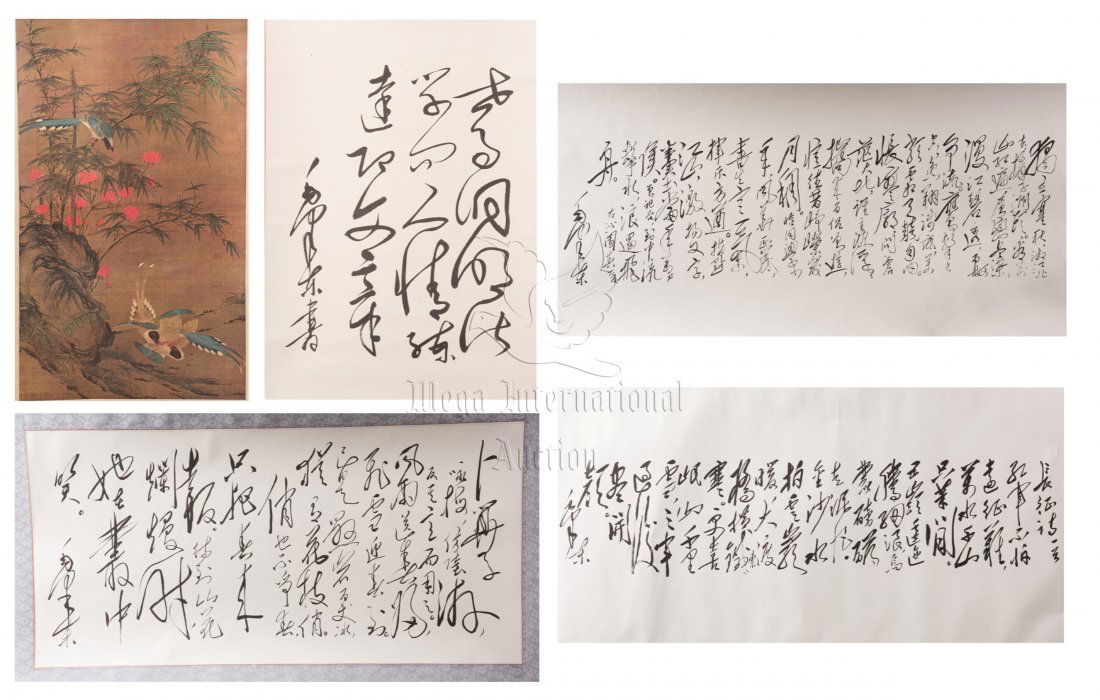 世事洞明皆
学问人情练
达即文章
毛泽东书
独立寒秋湘江北
去橘子洲头看万
山红遍层林尽染
漫江碧透百舸
争流鹰击长空
怅寥廓问苍
茫大地谁主沉浮
携来百侣曾游
忆往昔峥嵘岁
月稠恰同学少
年风华正茂
书生意气
挥斥方遒。指点
江山,激扬文字,
粪土当年万户
侯。曾记否到中流
击水,浪遏飞
舟。
毛泽东
卜算子
咏梅
反其意而用之。
风雨送春归,
飞雪迎春到。
已是悬崖百丈冰,
犹有花枝俏。
俏也不争春,
只把春来
报。待到山花
烂漫时
她在丛中
笑。
毛泽东
长征诗一首
红军不怕
远征难,
万水千山
只等闲。
五岭逶迤
腾细浪乌
蒙磅礴
走泥丸。
金沙水
拍云崖
暖大渡
桥横铁索
寒更喜
岷山千里
雪三军
过后
尽开
颜
毛泽东
Mega International
Auction